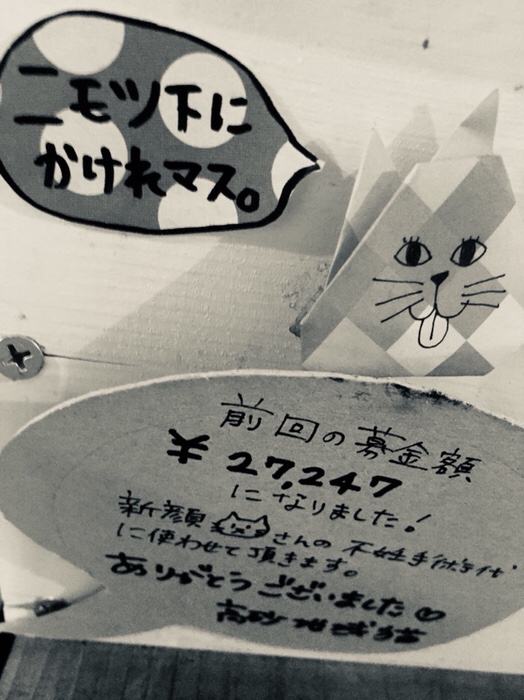 ニモツ下に
かけれマス。
前回の募金額
¥27,247
になりました!
新顔さんの不妊手術代
に使わせて頂きます。
ありがとうございました♡
高砂地球猫